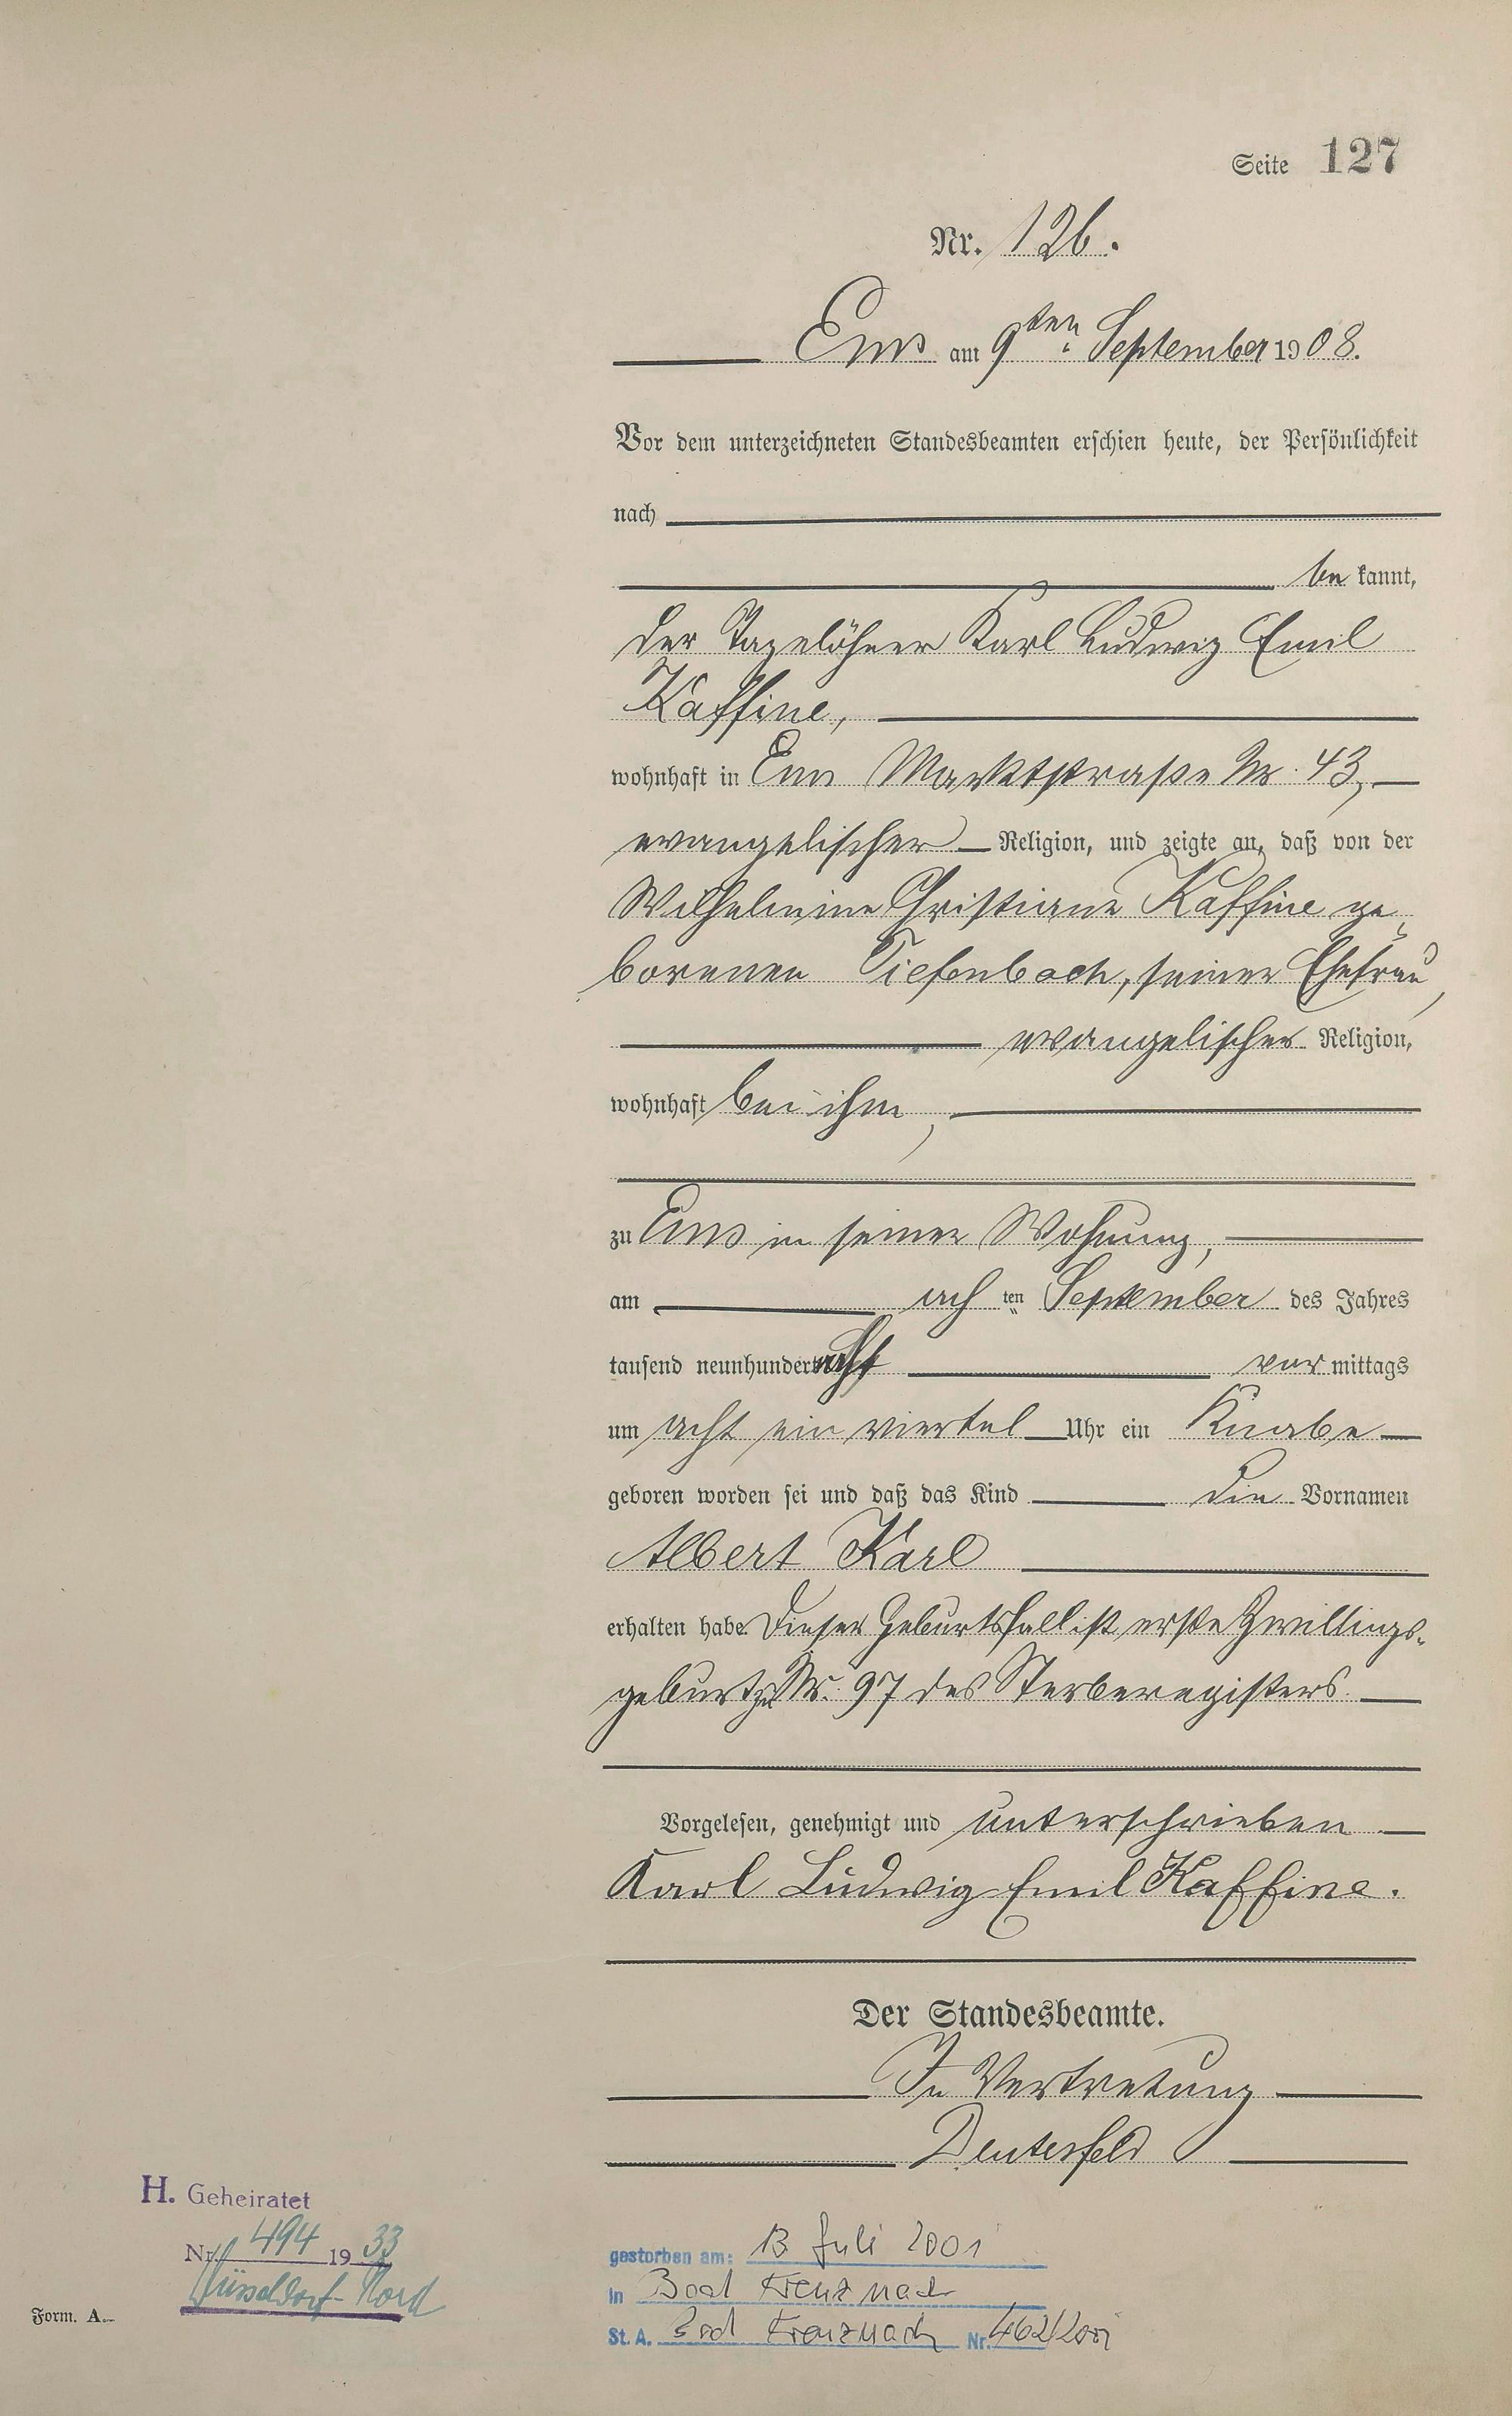 Seite 127
Nr. 126.
Ems am 9ten September 1908.
Vor dem unterzeichneten Standesbeamten erschien heute, der Persönlichkeit
nach
be kannt,
der Tagelöhner Karl Ludwig Emil
Kaffine,
wohnhaft in Ems Marktstraße Nr. 43,
evangelischer Religion, und zeigte an, daß von der
Wilhelmine Christiane Kaffine ge-
borenen Tiefenbach, seiner Ehefrau,
evangelischer Religion,
wohnhaft bei ihm,
zu Ems in seiner Wohnung,
am ach ten September des Jahres
tausend neunhundert acht vor mittags
um acht ein viertel Uhr ein Knabe
geboren worden sei und daß das Kind die Vornamen
Albert Karl
erhalten habe. Dieser Geburtsfall ist erste Zwillings-
geburt zu Nr. 97 des Sterberegisters
Vorgelesen, genehmigt und unterschrieben
Karl Ludwig Emil Kaffine.
Der Standesbeamte.
In Vertretung
Deutesfeld
H. Geheiratet
Nr. 494 1933
Düsseldorf-Nord
gestorben am: 13 Juli 2001
in Bad Kreuznach
St. A. Bad Kreuznach Nr. 462/2001
Form. A.